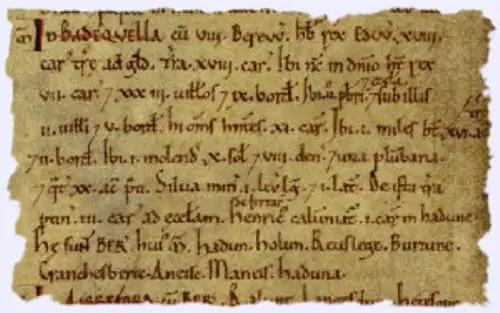 ꝳ In BADEQVELLA cū VIII. Bereuu. hƀ rex EDW̅. XVIII.
car̄ træ ad glđ. Tra. XVIII. car̄. Ibi nc̄ in dn̄io ht̄ rex
VII. car̄. 7 XXXIII. uiłłos 7 IX. borđ. Ibi. II. pƀri 7 æccła 7 sub illis
II. uiłłi 7 V. borđ. hi om̄s hn̄tes. XI. car̄. Ibi. I. miles ht̄. XVI. ac̄
7 II. borđ. Ibi. I. molend̄. X. soł 7 VIII. den̄. 7 una plūbaria
7 qt̄ XX. ac̄ p̄ti. Silua min̄. I. leu̅ lg̅. 7 I. lat̄. De ista tra
ptin̄. III. car̄ ad ecclam. Henric̄ de ferr̄ calūniat̄. I. car̄ in hadune
He sunt BER̅ hui ꝳ. hadun. holun. Reuslege. Burtune.
Cranchesberie. Aneise. Maneis. haduna.